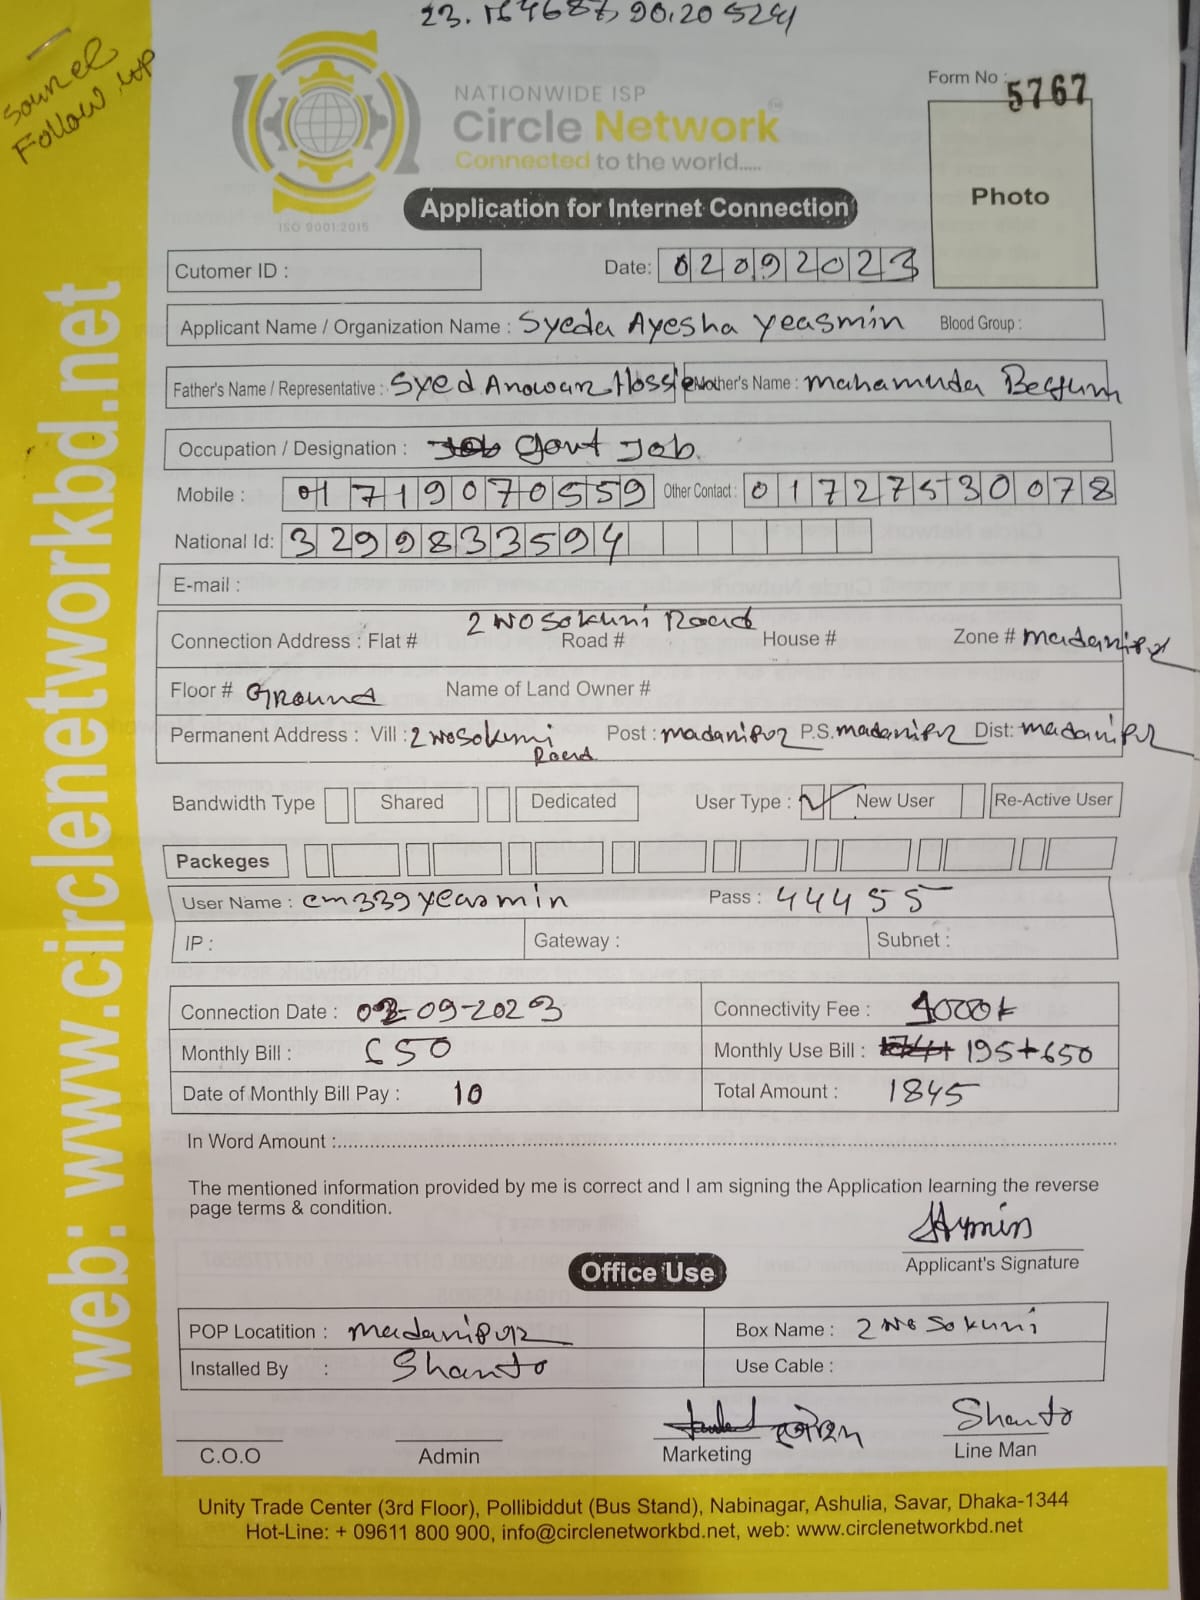 23.164687, 90.205241
Sournel
Follow up
NATIONWIDE ISP
Circle Network
Connected to the world.....
ISO 9001:2015
Form No : 5767
Photo
Application for Internet Connection
Cutomer ID :
Date: 02092023
Applicant Name / Organization Name : Syeda Ayesha Yeasmin Blood Group :
Father's Name / Representative : Syed Anowar Hossie Mother's Name : mahamuda Begum
Occupation / Designation : Govt Job
Mobile : 01719070559 Other Contact : 01727530078
National Id: 3299833594
E-mail :
2 No Sokuni Road
Connection Address : Flat # Road # House # Zone # madaripur
Floor # Ground Name of Land Owner #
Permanent Address : Vill : 2 no Sokuni Post : madaripur P.S. madaripur Dist: madaripur
Road
Bandwidth Type Shared Dedicated User Type : New User Re-Active User
Packeges
User Name : cm339yeasmin Pass : 44455
IP : Gateway : Subnet :
Connection Date : 02-09-2023 Connectivity Fee :
Monthly Bill : 650 Monthly Use Bill : 195+650
Date of Monthly Bill Pay : 10 Total Amount : 1845
In Word Amount :
The mentioned information provided by me is correct and I am signing the Application learning the reverse
page terms & condition.
Applicant's Signature
Office Use
POP Locatition : madaripur Box Name : 2 No Sokuni
Installed By : Shanto Use Cable :
Shanto
C.O.O Admin Marketing Line Man
Unity Trade Center (3rd Floor), Pollibiddut (Bus Stand), Nabinagar, Ashulia, Savar, Dhaka-1344
Hot-Line: + 09611 800 900, info@circlenetworkbd.net, web: www.circlenetworkbd.net
web: www.circlenetworkbd.net